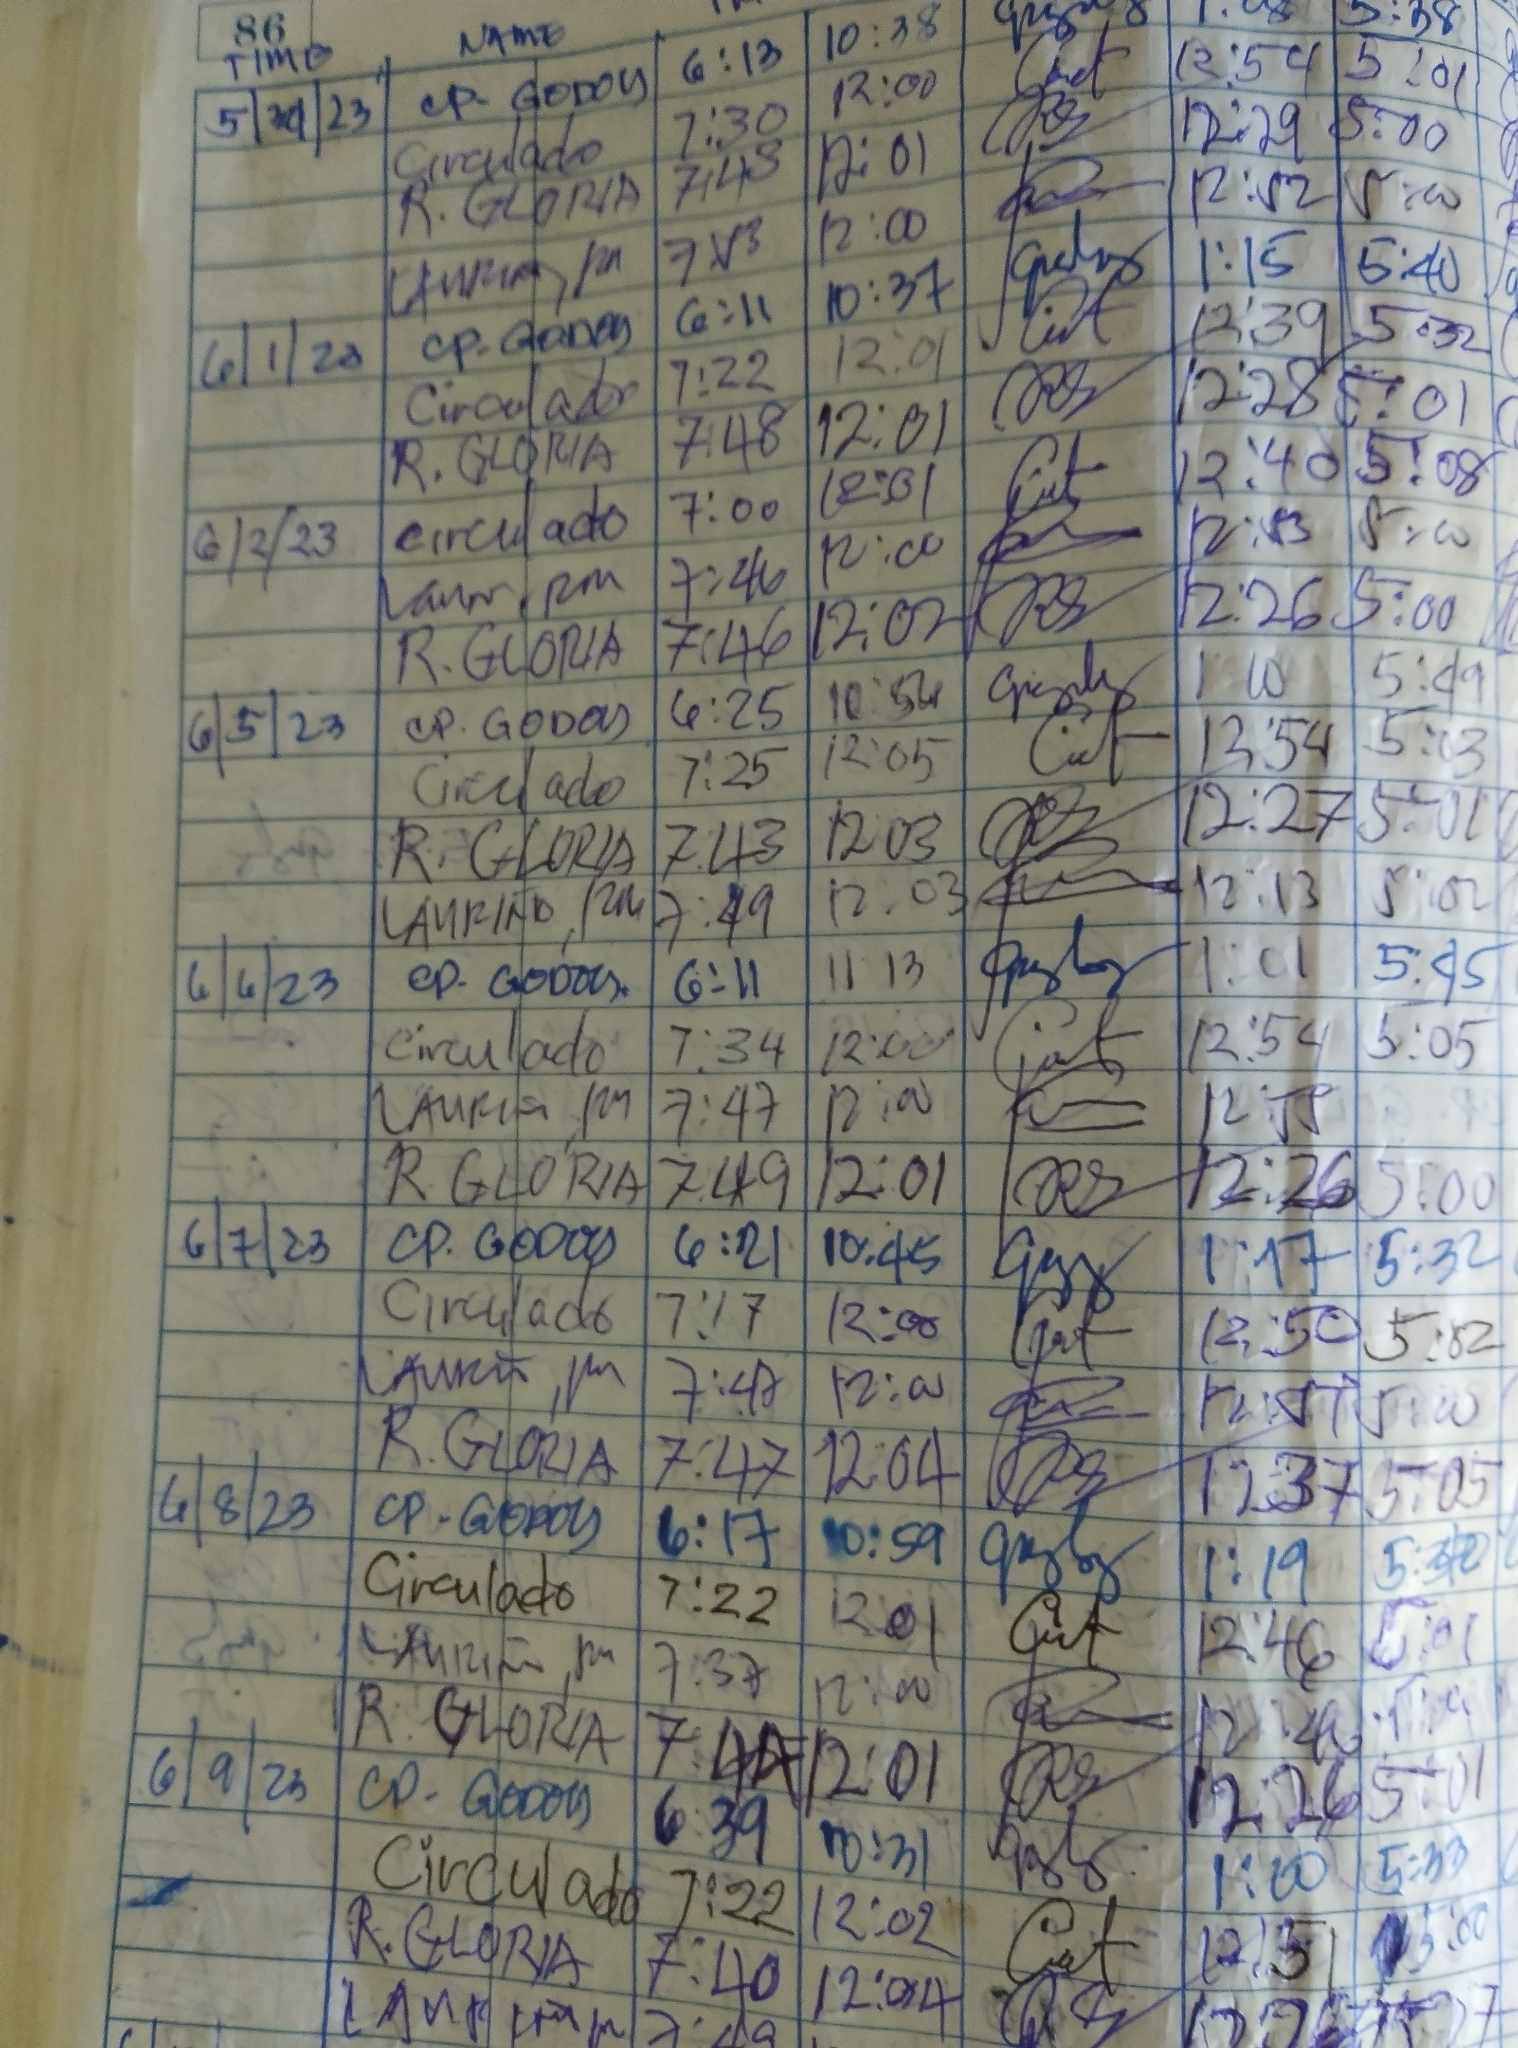 86
TIME NAME
5/31/23 CP. GODOY 6:13 10:38 1:08 5:38
Circulado 7:30 12:00 12:54 5:01
R. GLORIA 7:48 12:01 12:29 5:00
LAURINO, RM 12:00 12:52 5:00
6/1/23 CP. GODOY 6:11 10:37 1:15 5:40
Circulado 7:22 12:01 12:39 5:32
R. GLORIA 7:48 12:01 12:28 5:01
6/2/23 Circulado 7:00 12:01 12:40 5:08
RM 7:46 12:00 12:53 5:00
R. GLORIA 7:46 12:02 12:26 5:00
6/5/23 CP. GODOY 6:25 10:54 1:10 5:49
Circulado 7:25 12:05 12:54 5:03
R. GLORIA 7:43 12:03 12:27 5:01
LAURINO, RM 7:49 12:03 12:13 5:02
6/6/23 CP. GODOY 6:11 11 13 1:01 5:45
Circulado 7:34 12:00 12:54 5:05
LAURINO, RM 7:47 12:00 12:55
R. GLORIA 7:49 12:01 12:26 5:00
6/7/23 CP. GODOY 6:21 10:45 1:17 5:32
Circulado 7:17 12:00 12:50 5:02
LAURINO, RM 7:47 12:00 12:57 5:00
R. GLORIA 7:47 12:04 12:37 5:05
6/8/23 CP. GODOY 6:17 10:59 1:19
Circulado 7:22 12:01 12:46 5:01
LAURINO, RM 7:37 12:00
R. GLORIA 12:01 12:26 5:01
6/9/23 CP. GODOY 6:39 10:31 5:33
Circulado 7:22 12:02 12:51 5:00
R. GLORIA 7:40 12:04